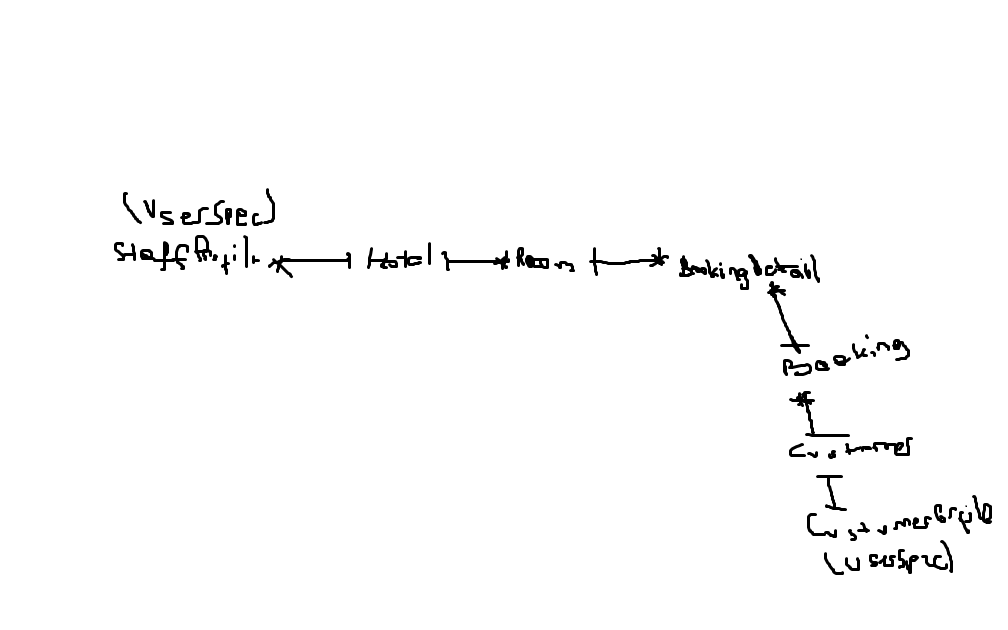 (UserSpec)
StaffProfile Hotel Room BookingDetail
Booking
Customer
CustomerProfile
(UserSpec)